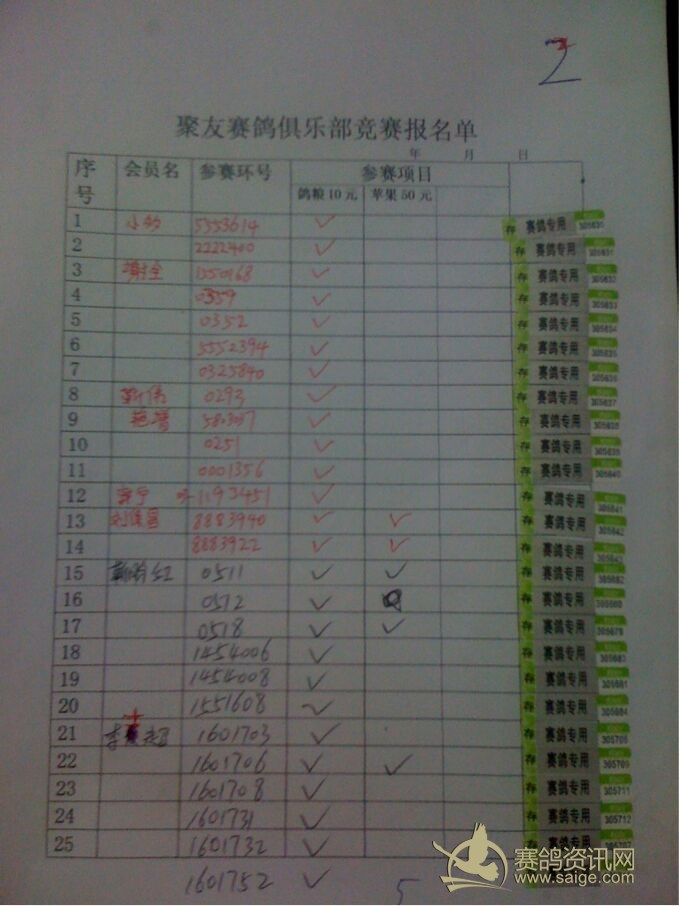 2
聚友赛鸽俱乐部竞赛报名单
年 月 日
序号 会员名 参赛环号 参赛项目
鸽粮10元 苹果50元
1 5553614 ✓ 存 赛鸽专用 305630
2 2222400 ✓ 存 赛鸽专用 305631
3 谢全 1550168 ✓ 存 赛鸽专用 305632
4 0359 ✓ 存 赛鸽专用 305633
5 0352 ✓ 存 赛鸽专用 305634
6 5552394 ✓ 存 赛鸽专用 305635
7 0325840 ✓ 存 赛鸽专用 305636
8 0293 ✓ 存 赛鸽专用 305637
9 ✓ 存 赛鸽专用 305638
10 0251 ✓ 存 赛鸽专用 305639
11 0001356 ✓ 存 赛鸽专用 305640
12 1193451 ✓ 存 赛鸽专用 305641
13 8883940 ✓ ✓ 存 赛鸽专用 305642
14 8883922 ✓ ✓ 存 赛鸽专用 305643
15 0511 ✓ ✓ 存 赛鸽专用 305682
16 0512 ✓ 存 赛鸽专用
17 0518 ✓ ✓ 存 赛鸽专用 305679
18 1454006 ✓ 存 赛鸽专用 305683
19 1454008 ✓ 存 赛鸽专用 305681
20 1551608 ✓ 存 赛鸽专用 305684
21 1601703 ✓ 存 赛鸽专用 305708
22 1601706 ✓ ✓ 存 赛鸽专用 305709
23 1601708 ✓ 存 赛鸽专用 305711
24 1601731 ✓ 存 赛鸽专用 305712
25 1601732 ✓ 存 赛鸽专用
1601752 ✓ 5
赛鸽资讯网
www.saige.com